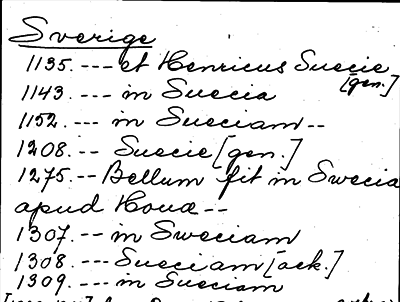 Sverige
1135. --- et Henricus Suecie
[gen.]
1143. --- in Suecia
1152. --- in Sueciam --
1208. -- Suecie [gen.]
1275. -- Bellum fit in Swecia
apud Houa --
1307. -- in Sweciam
1308. --- Sueciam [ack.]
1309. --- in Sueciam